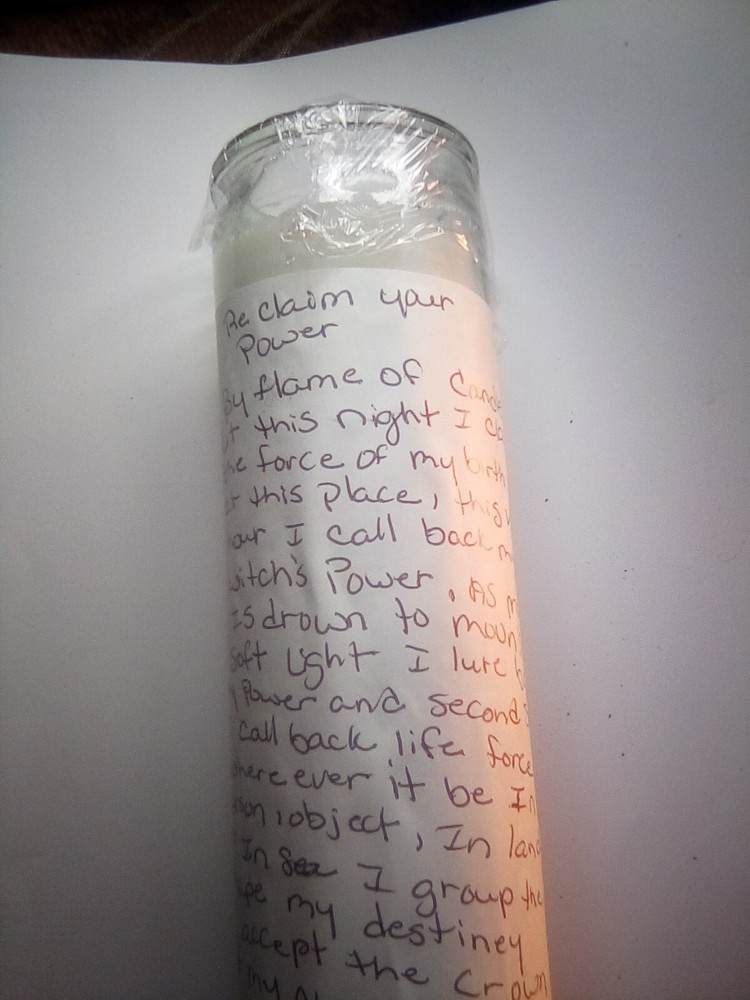 Reclaim your
Power
By flame of Candle
this night I
force of my birth
this Place, this
I call back
Power. As
Is drown to moon
soft light I lure
Power and second
call back life force
whereever it be In
object, In land
In Sea I group the
my destiney
accept the Crown
my